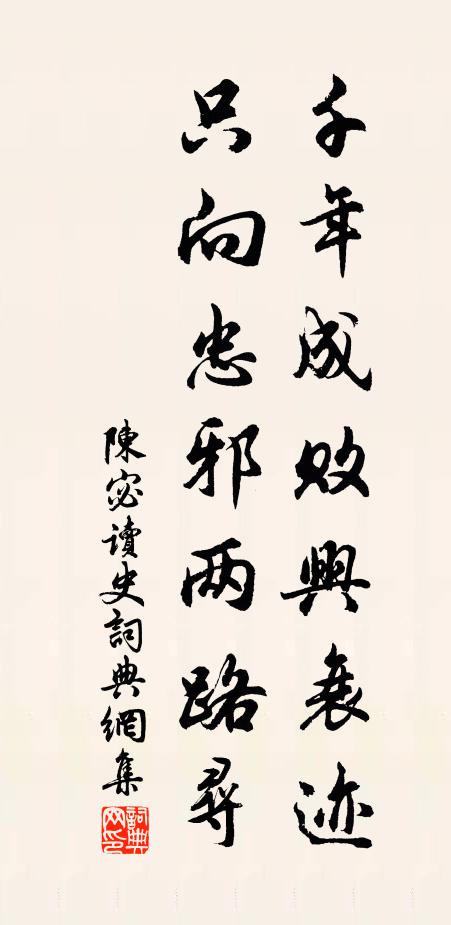 千年成败興衰迹
只向忠邪两路尋
陳宓讀史詞典網集
詞典网印